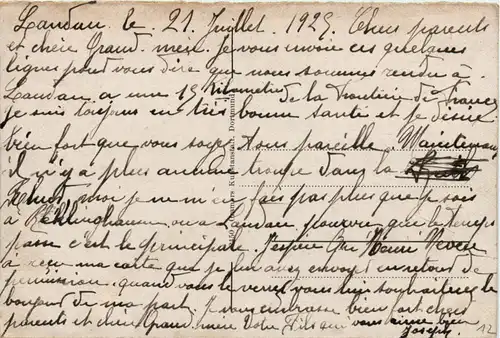 Landau. le. 21. Juillet. 1925. Chers parents
et chère Grand. mère. Je vous envoie ces quelques
lignes pour vous dire que nous sommes rendu à
Landau. a une 15 Kilometre de la Frontière de France
Je suis toujours en très bonne santé et je désire
bien fort que vous soyez tous pareille. Maintenant
il n'y a plus aucune troupe dans la
moi je ne m'en fais pas plus que je sois
à ou a Landau pourvu que le temps
passe c'est le principale. J'espère que
à recu ma carte que je lui avez envoyé en retour de
permission, quand vous le verrez vous lui souhaiterez le
bonjour de ma part. Je vous embrasse bien fort chers
parents et chère Grand. mère Votre Fils qui vous aime bien
Joseph.
12
Kunstanstalt, Dortmund